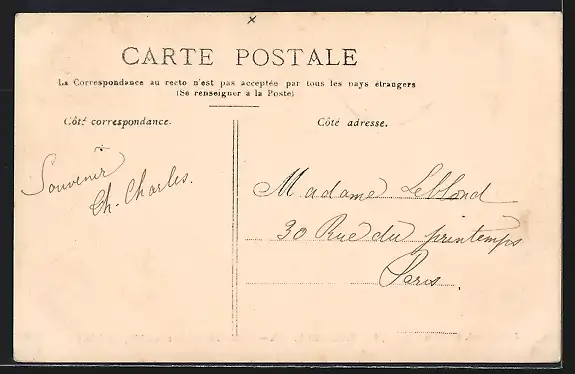 CARTE POSTALE
La Correspondance au recto n'est pas acceptée par tous les pays étrangers
(Se renseigner à la Poste)
Côté correspondance.
Côté adresse.
Souvenir
Ch. Charles.
Madame Leblond
30 Rue du printemps
Paris.